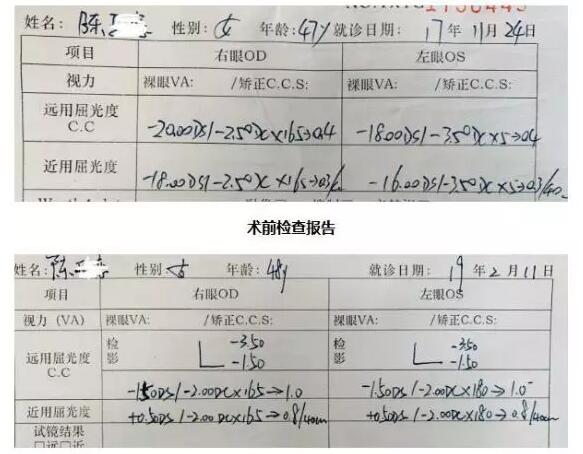 姓名: 陈 性别: 女 年龄: 47y 就诊日期: 17年 11月 24日
项目 右眼OD 左眼OS
视力 裸眼VA: /矫正C.C.S: 裸眼VA: /矫正C.C.S:
远用屈光度 C.C -20.00DS/-2.50DC×165→0.4 -18.00DS/-3.50DC×5→0.4
近用屈光度 -18.00DS/-2.50DC×165→0.3/ -16.00DS/-3.50DC×5→0.3/40
术前检查报告
姓名: 陈 性别 女 年龄: 48y 就诊日期: 19年 2月 11日
项目 右眼OD 左眼OS
视力 (VA) 裸眼VA: /矫正C.C.S: 裸眼VA: /矫正C.C.S:
远用屈光度 C.C 检影 -3.50 -1.50 检影 -3.50 -1.50
-1.50DS/-2.00DC×165→1.0 -1.50DS/-2.00DC×180→1.0-
近用屈光度 +0.50DS/-2.00DC×165→0.8/40cm +0.50DS/-2.00DC×180→0.8/40cm
试镜结果
□远□近